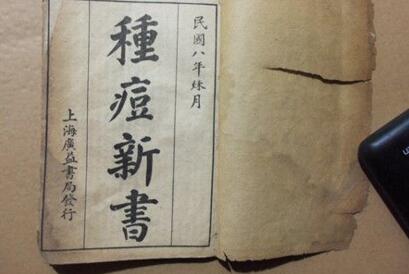 民國八年㷊月
種痘新書
上海廣益書局發行